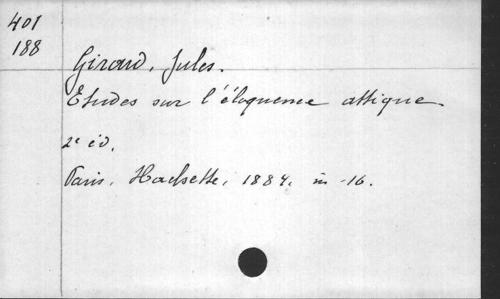 401
188
Giraud, Jules.
Etudes sur l'éloquence attique
2e éd.
Paris, Hachette, 1884, in-16.